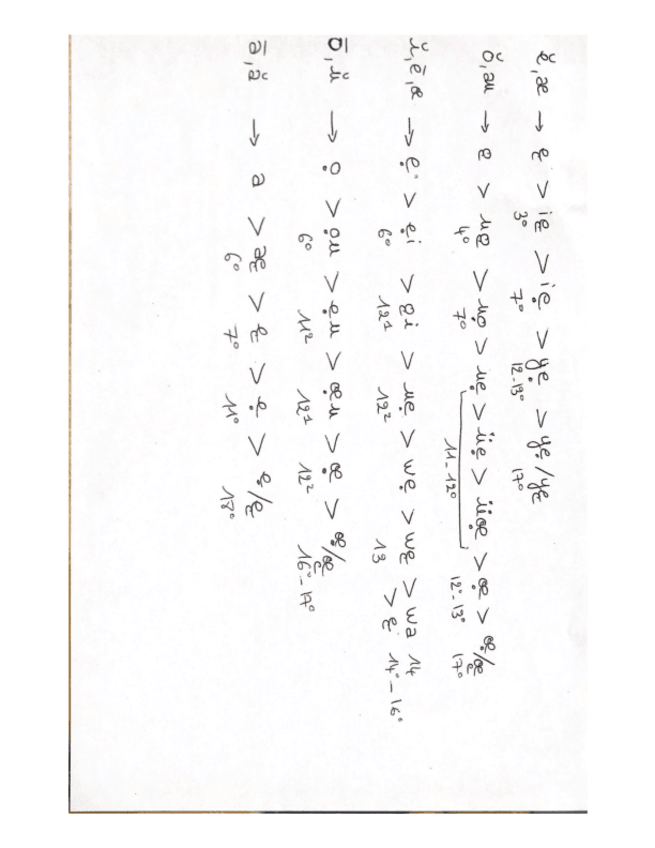 ĕ, æ → ę > ię > iẹ > yẹ > yẹ/yę
3° 7° 12-13° 17°
ŏ, au → ǫ > uǫ > uọ > uẹ > üẹ > üœ̣ > œ̣ > œ̣/œ̨
4° 7° 11-12° 12°-13° 17°
ĭ, ē, œ → ẹ > ẹi > ọi > uẹ > wẹ > wę > wa 14
6° 12¹ 12² 13 > ę 14°-16°
ō, ŭ → ọ > ọu > ẹu > œ̣u > œ̣ > œ̣/œ̨
6° 11² 12¹ 12² 16°-17°
ā, ă → a > aę > ę > ẹ > ẹ/ę
6° 7° 11° 18°